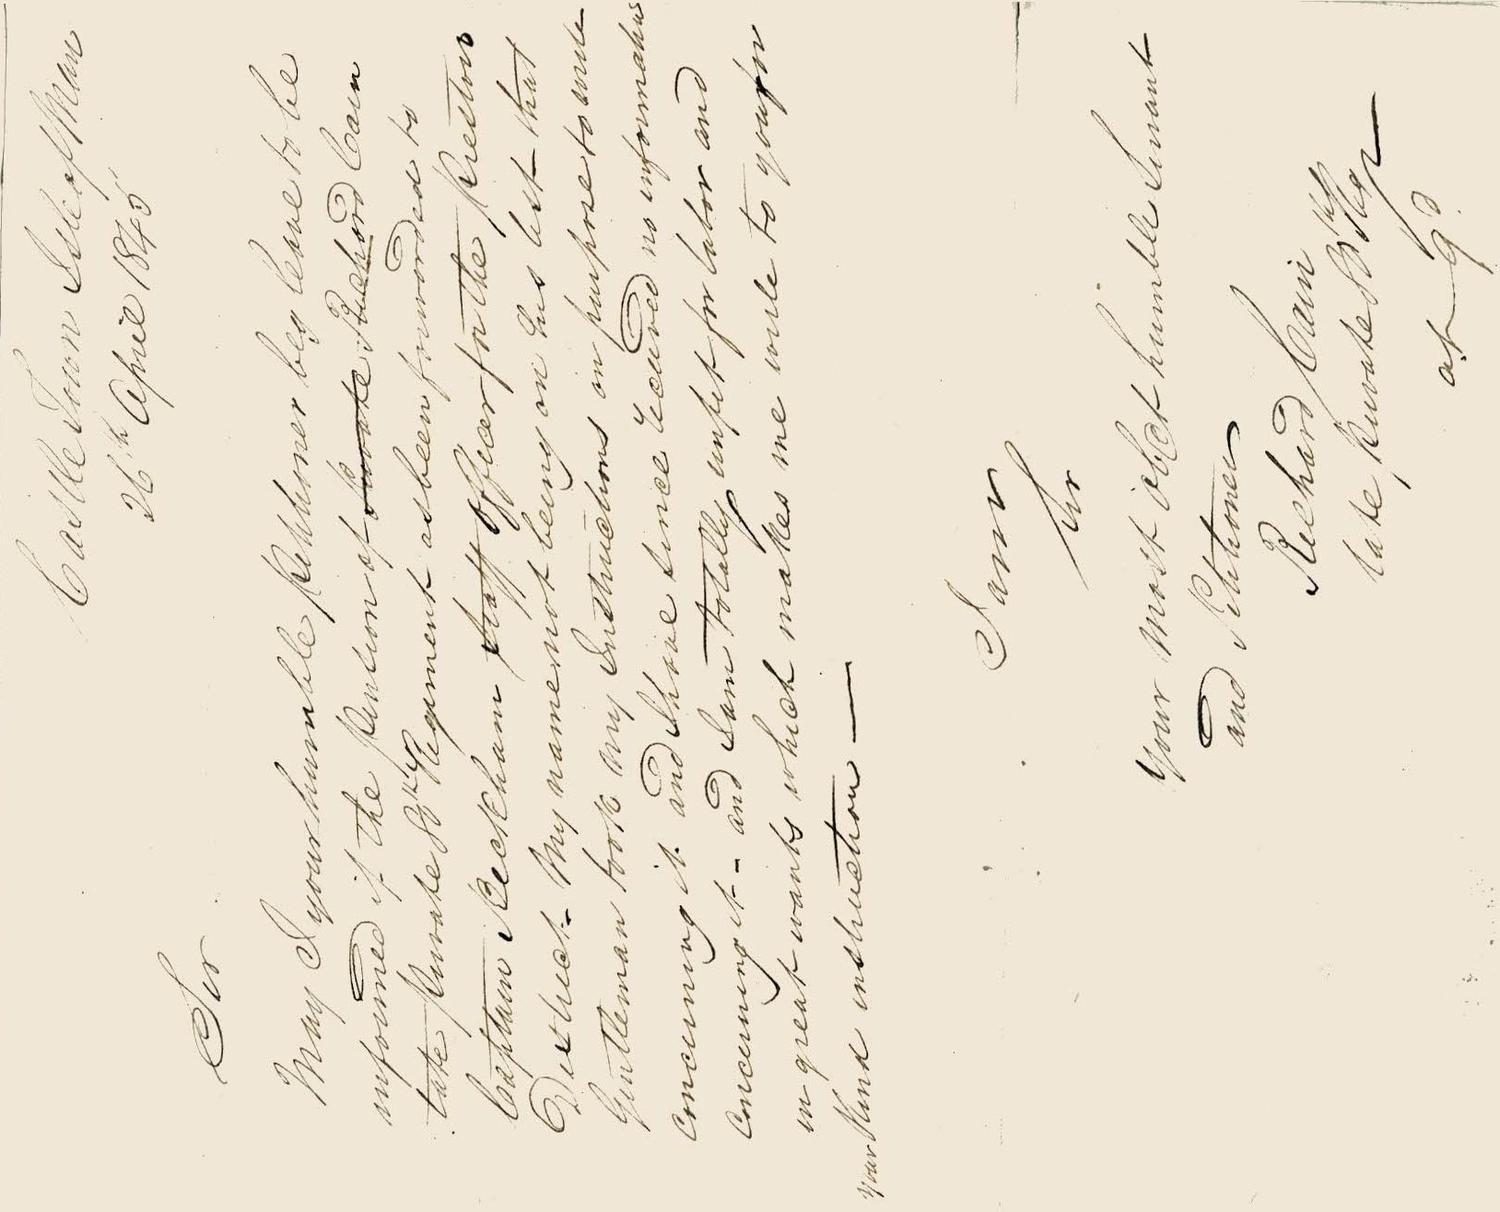 Castle Town Isle of Man
26th April 1845
Sir
May I your humble Petitioner beg leave to be
informed if the Pention of private Richard Cain
late Private 88th Regiment as been forworded to
Captain Beckham Staff Officer for the Preston
District. My name not being on his list that
Gentleman took my Instructions on purpose to write
concerning it and I have since receved no information
concerning it - and I am totally unfit for labor and
in great wants which makes me write to you for
your Kind instruction —
I am
Sir
your Most obet humble Servant
and Petitioner
Richard Cain
late Private 88th Regt
at 9d.